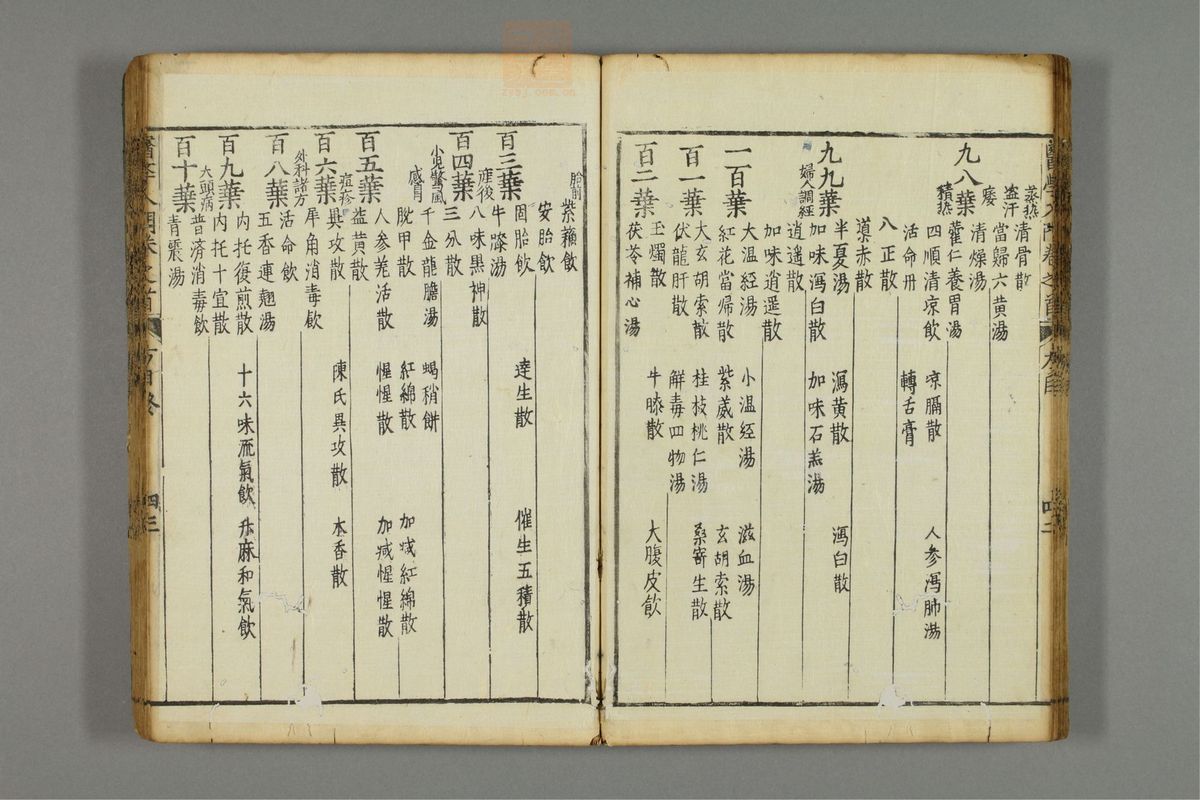 蒸熱 清骨散
盗汗 當歸六黃湯
痿 清燥湯
九八葉 積熱 藿仁養胃湯
四順清凉飲 凉膈散 人參瀉肺湯
活命丹 轉舌膏
八正散
導赤散
半夏湯 瀉黄散 瀉白散
九九葉 婦人調經 加味瀉白散 加味石羔湯
逍遥散
加味逍遥散
大温經湯 小温經湯 滋血湯
一百葉 紅花當歸散 紫葳散 玄胡索散
百一葉 大玄胡索散 桂枝桃仁湯 桑寄生散
伏龍肝散 解毒四物湯
玉燭散 牛膝散 大腹皮飲
百二葉 茯苓補心湯
胎前 紫蘇飲
安胎飲
百三葉 固胎飲 達生散 催生五積散
牛膝湯
産後 八味黒神散
百四葉 三分散
小兒驚風 千金龍膽湯 蝎稍餅
感冐 脫甲散 紅綿散 加減紅綿散
百五葉 人參羌活散 惺惺散 加減惺惺散
痘疹 益黄散
異攻散 陳氏異攻散 木香散
百六葉 犀角消毒飲
外科諸方 活命飲
百八葉 五香連翹湯
内托復煎散 十六味流氣飲 升麻和氣飲
百九葉 内托十宣散
大頭病 普濟消毒飲
百十葉 青震湯
四三